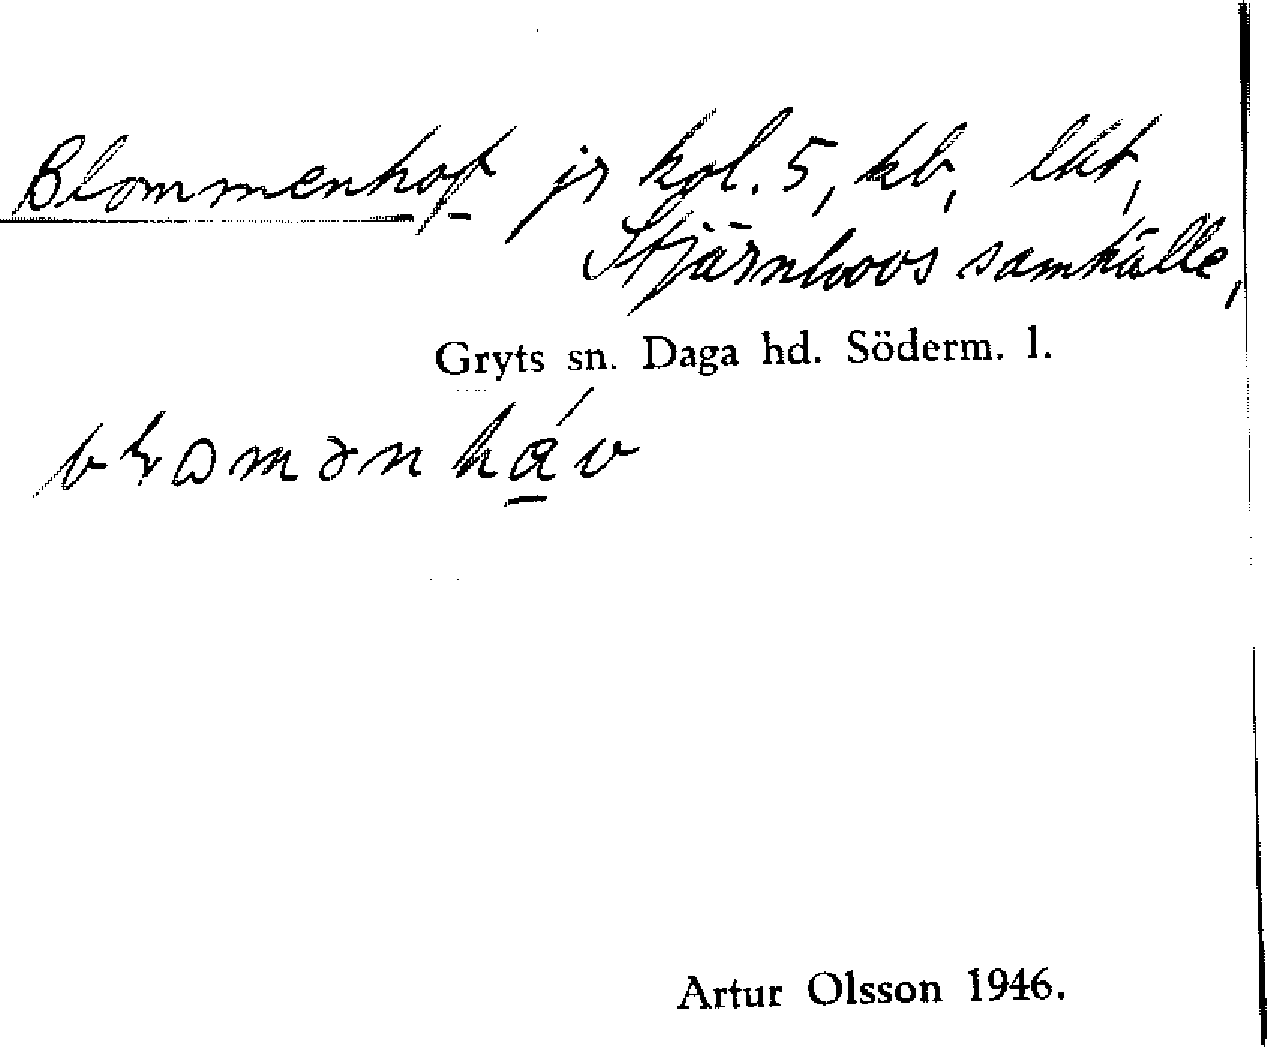 Blommenhof jr kgl. 5, kb, lkt,
Stjärnhovs samhälle,
Gryts sn. Daga hd. Söderm. l.
blɷmənháv
Artur Olsson 1946.